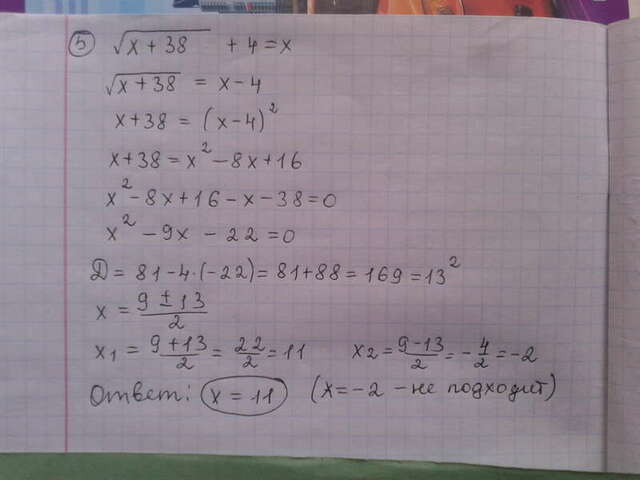 5 √(x + 38) + 4 = x
√(x + 38) = x - 4
x + 38 = (x - 4)²
x + 38 = x² - 8x + 16
x² - 8x + 16 - x - 38 = 0
x² - 9x - 22 = 0
D = 81 - 4·(-22) = 81 + 88 = 169 = 13²
x = (9 ± 13)/2
x₁ = (9 + 13)/2 = 22/2 = 11 x₂ = (9 - 13)/2 = -4/2 = -2
Ответ: x = 11 (x = -2 - не подходит)